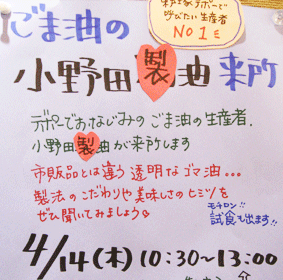 ごま油の
呼びたい生産者
NO1
小野田製油来所
デポーでおなじみのごま油の生産者、
小野田製油が来所します
市販品とは違う透明なゴマ油...
製法のこだわりや美味しさのヒミツを
ぜひ聞いてみましょう
モチロン!!
試食も出ます!!
4/14(木) 10:30~13:00